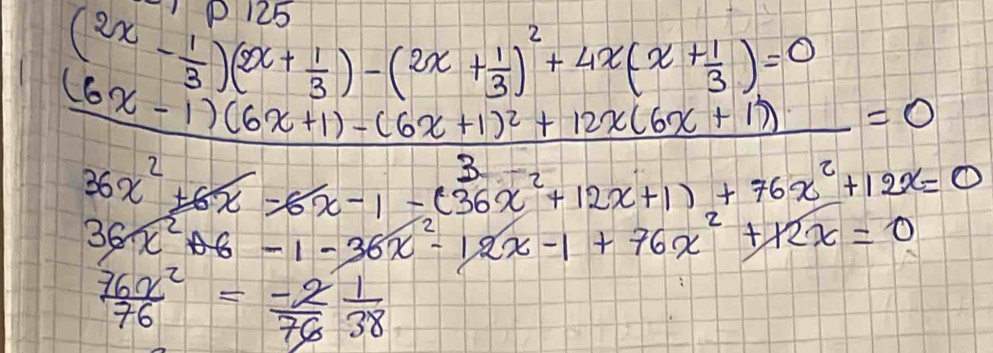 p 125
(2x - 1/3)(2x + 1/3) - (2x + 1/3)² + 4x(x + 1/3) = 0
(6x - 1)(6x + 1) - (6x + 1)² + 12x(6x + 1) = 0
3
36x² + 6x - 6x - 1 - (36x² + 12x + 1) + 76x² + 12x = 0
36x² - 1 - 36x² - 12x - 1 + 76x² + 12x = 0
76x²/76 = -2/76 1/38